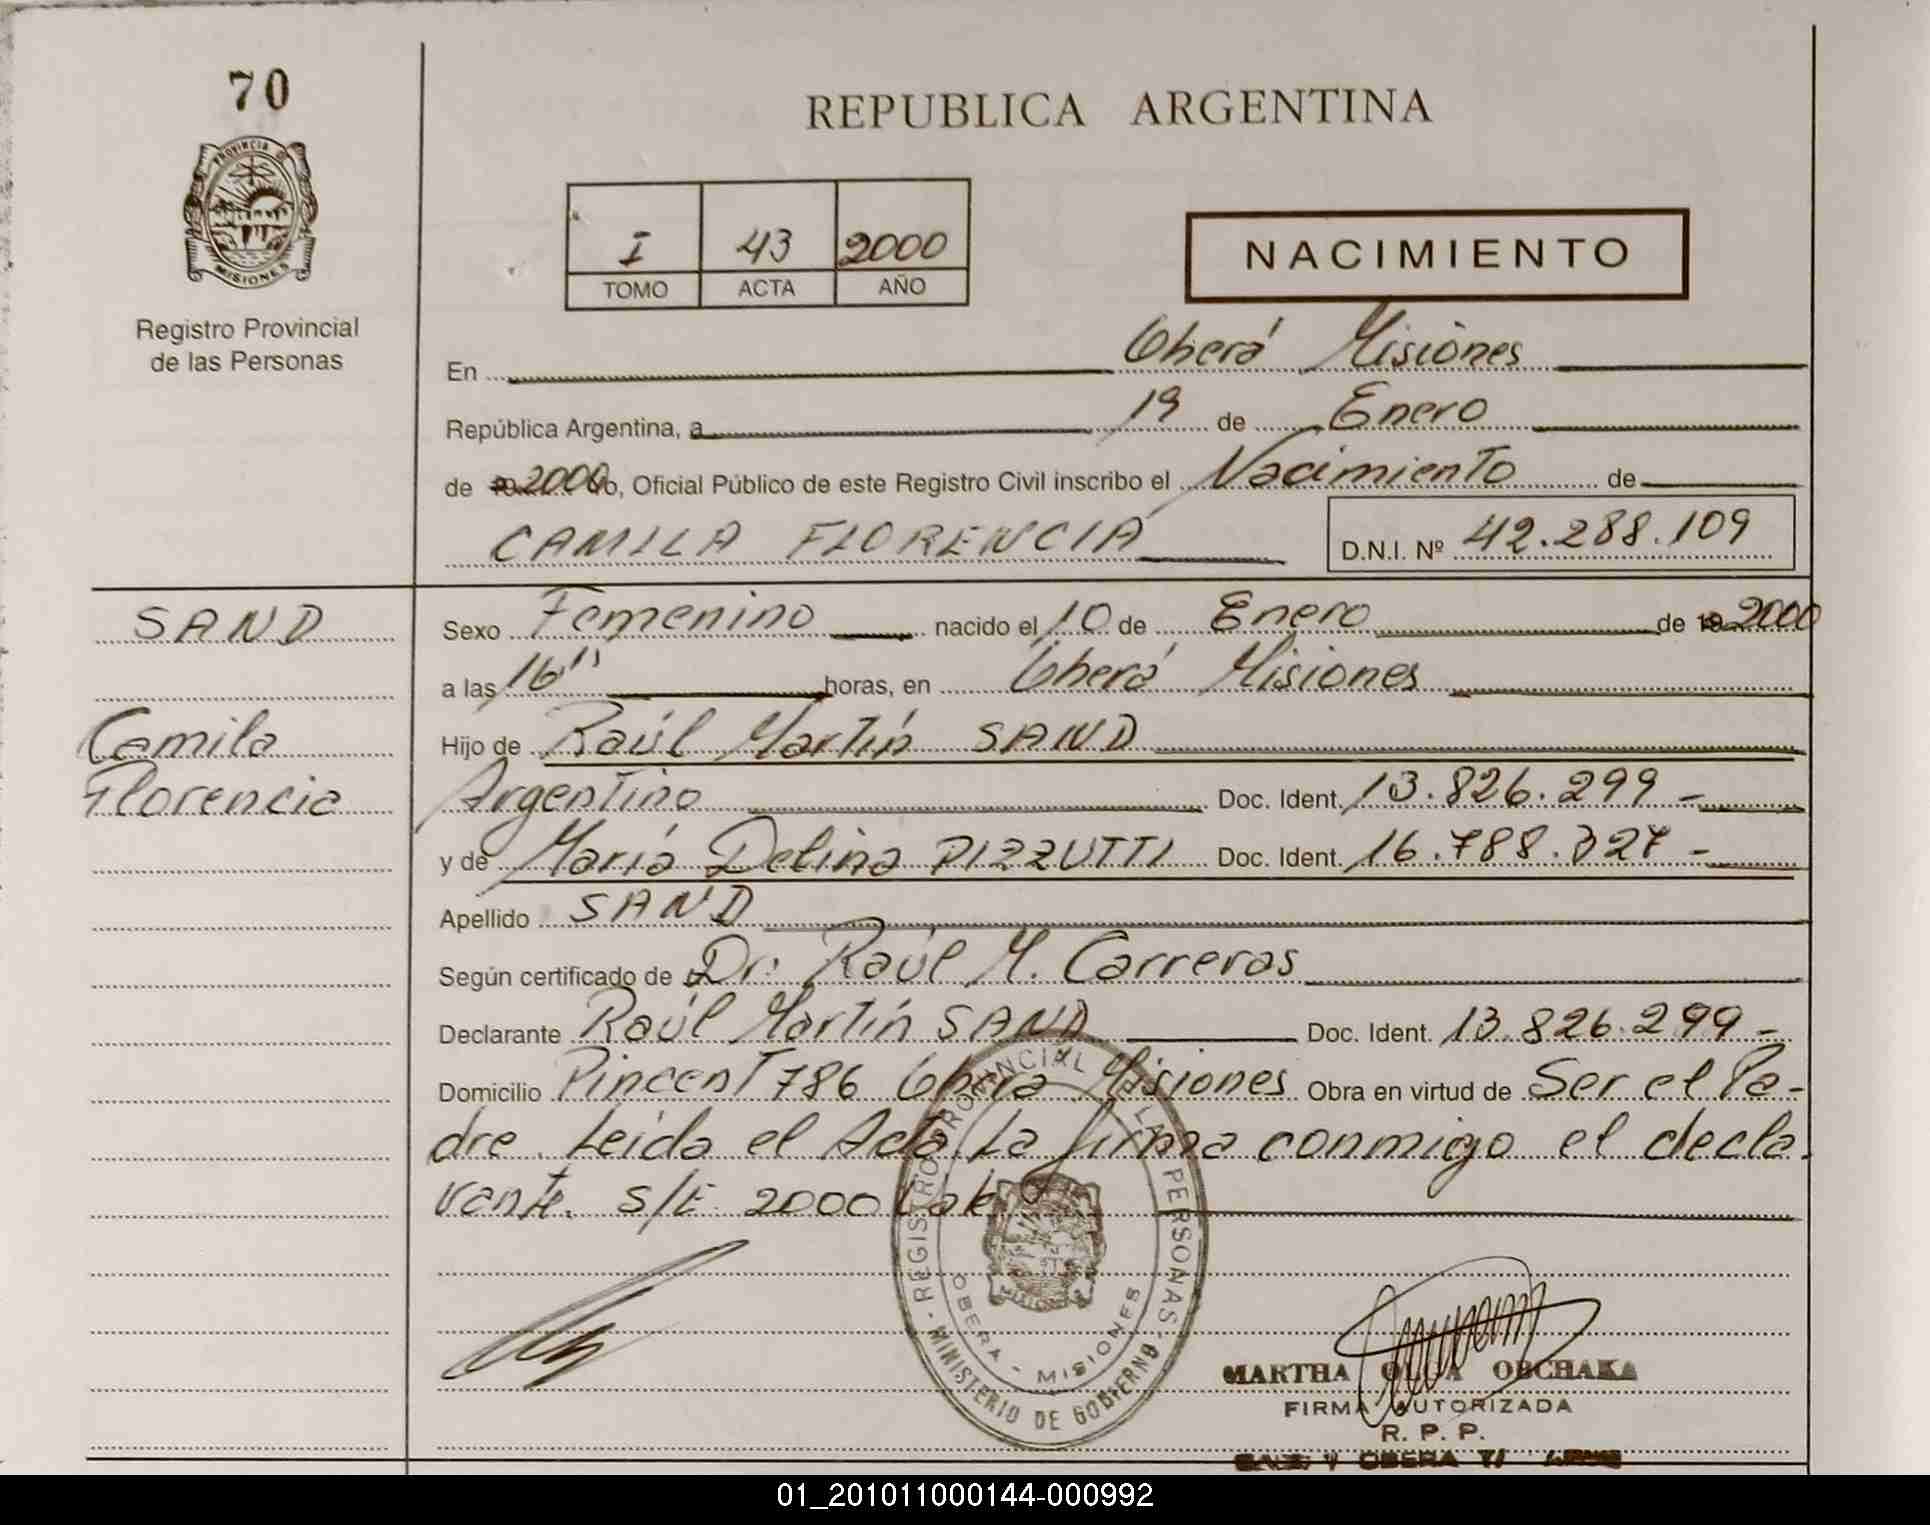 70
PROVINCIA DE
MISIONES
Registro Provincial
de las Personas
REPUBLICA ARGENTINA
I 43 2000
TOMO ACTA AÑO
NACIMIENTO
En Oberá Misiones
República Argentina, a 19 de Enero
de 2000 yo, Oficial Público de este Registro Civil inscribo el Nacimiento de
CAMILA FLORENCIA D.N.I. Nº 42.288.109
SAND
Camila
Florencia
Sexo Femenino nacido el 10 de Enero de 2000
a las 16" horas, en Oberá Misiones
Hijo de Raúl Martín SAND
Argentino Doc. Ident. 13.826.299 -
y de María Delina PIZZUTTI Doc. Ident. 16.788.327 -
Apellido SAND
Según certificado de Dr: Raúl M. Carreras
Declarante Raúl Martín SAND Doc. Ident. 13.826.299 -
Domicilio Pincent 786 Oberá Misiones Obra en virtud de Ser el Pa-
dre. Leida el Acta La firma conmigo el decla-
rante. S/E 2000 Vale
REGISTRO PROVINCIAL DE LAS PERSONAS
OBERA - MISIONES
MINISTERIO DE GOBIERNO
MARTHA OLGA OBCHAKA
FIRMA AUTORIZADA
R. P. P.
OBERA
01_201011000144-000992